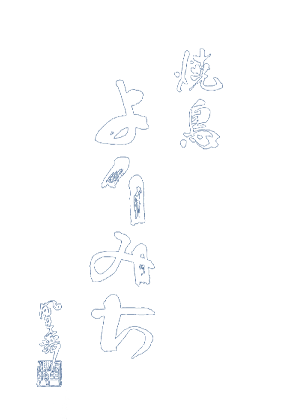 焼鳥
よりみち